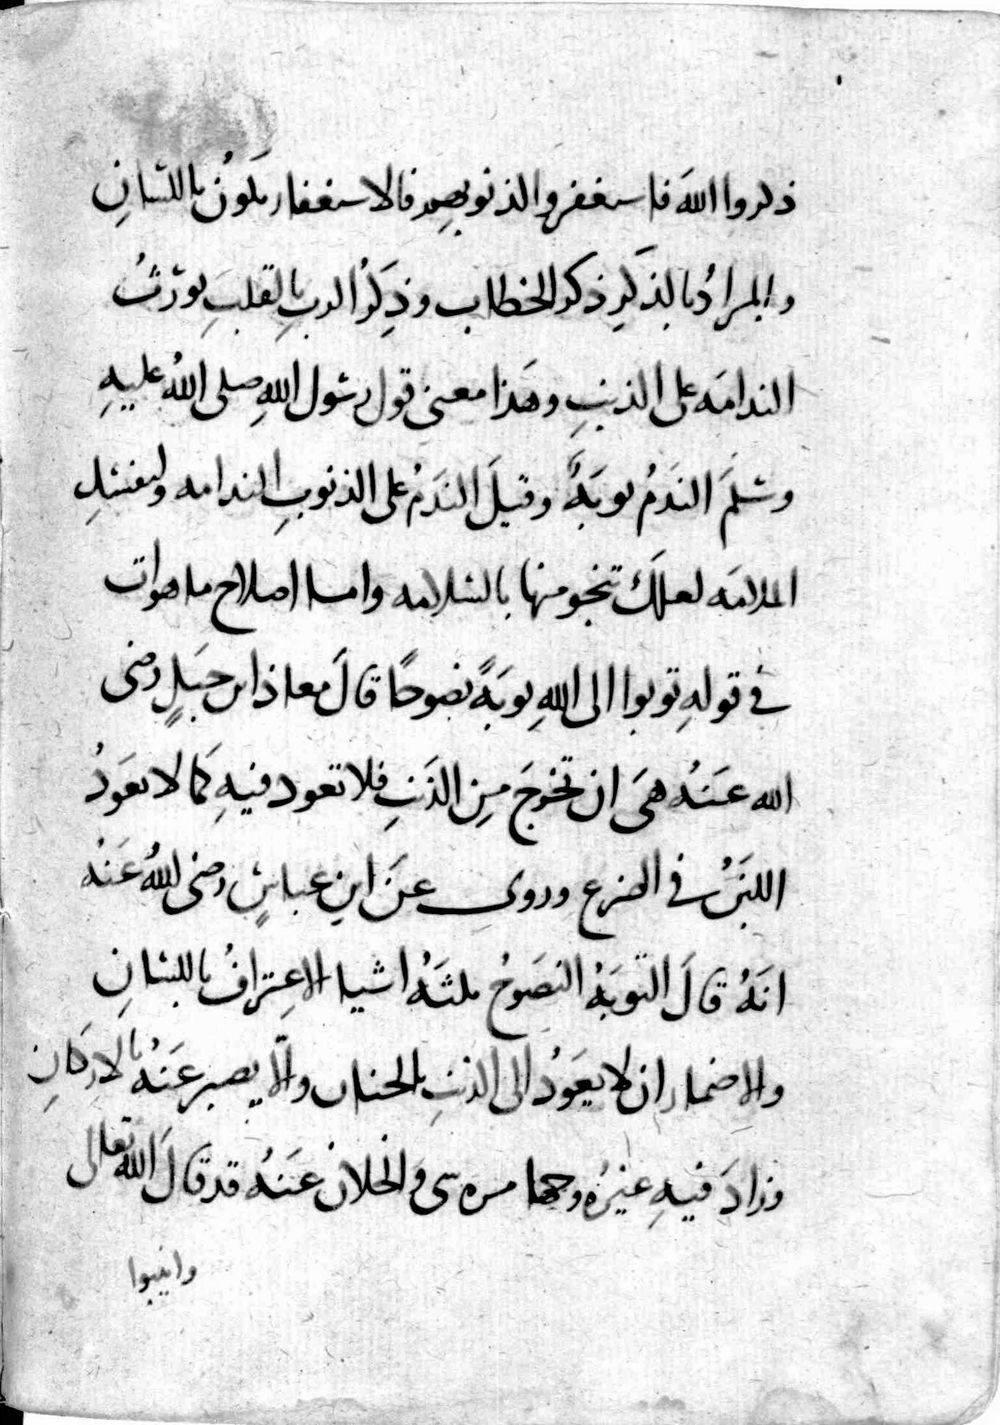 ذكروا الله فاستغفروا لذنوبهم فالاستغفار يكون باللسانِ
والمرادُ بالذكرِ ذكر الخطاب وذِكرُ الربِ بالقلبِ يورّثُ
الندامَه على الذنبِ وهَذا معنى قول رسول اللهِ صلى اللهُ عليهِ
وسَلمَ الندَمُ توبَةٌ وقيلَ الندَمُ على الذنوبِ الندامه
الملامَه لعلكَ تنجو منها بالسلامه واما اصلاح ما هوات
في قولهِ توبوا الى اللهِ توبَةً نصوحًا قالَ معاذ ابن جبَلٍ رضى
الله عَنهُ هىَ ان تخرجَ مِن الذَنبِ فلا تعود فيهِ كَما لا يعَودُ
اللبَنُ في الضرع وروى عنَ ابنِ عباسٍ رضى اللهُ عَنهُ
انَهُ قالَ التوبَهُ النصَوحُ ثلثَهُ اشيا الاعِترافُ باللسَانِ
والاضمار ان لا يعَودُ الى الذنبِ بالجنان والّا يصبر عَنهُ بالاركَانِ
وزادَ فيهِ غيرُه عَنهُ قد قالَ اللهُ تعالى
وانيبوا